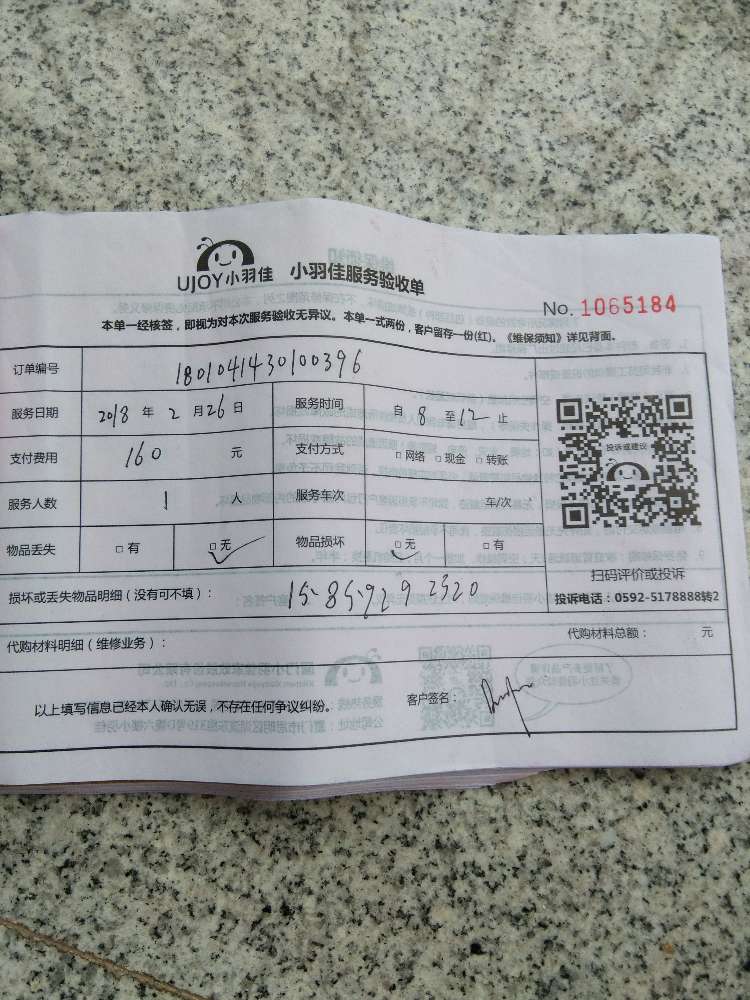 UJOY小羽佳 小羽佳服务验收单
No. 1065184
本单一经核签，即视为对本次服务验收无异议。本单一式两份，客户留存一份(红)。《维保须知》详见背面。
订单编号 1801041430100396
服务日期 2018 年 2 月 26 日 服务时间 自 8 至 12 止
支付费用 160 元 支付方式 □网络 □现金 □转账
服务人数 1 人 服务车次 车/次
物品丢失 □有 □无 物品损坏 □无 □有
投诉或建议
扫码评价或投诉
投诉电话：0592-5178888转2
损坏或丢失物品明细（没有可不填）： 15-85-929 2320
代购材料明细（维修业务）： 代购材料总额： 元
以上填写信息已经本人确认无误，不存在任何争议纠纷。 客户签名：